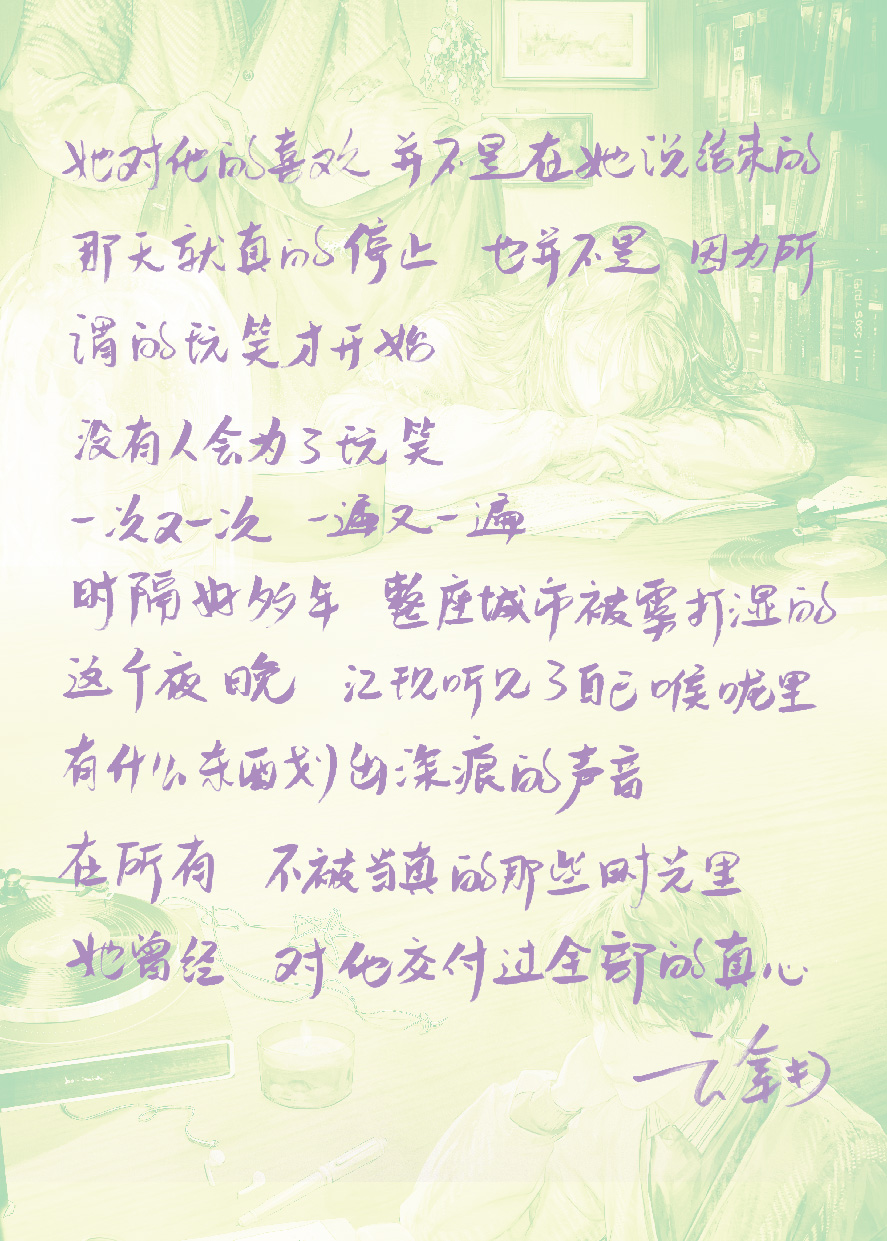 她对他的喜欢 并不是在她说结束的
那天就真的停止 也并不是 因为所
谓的玩笑才开始
没有人会为了玩笑
一次又一次 一遍又一遍
时隔好多年 整座城市被雾打湿的
这个夜晚 江玧听见了自己喉咙里
有什么东西划出深痕的声音
在所有 不被当真的那些时光里
她曾经 对他交付过全部的真心
云拿月